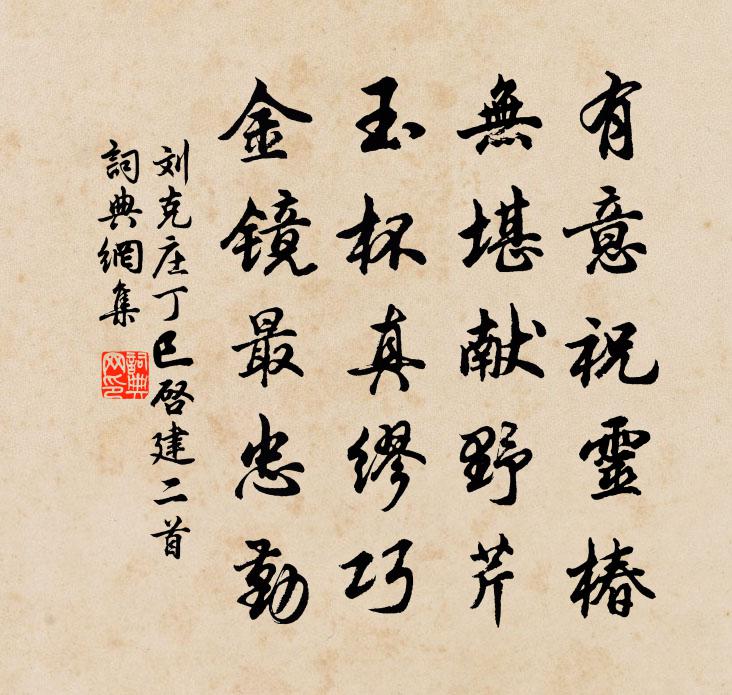 有意祝靈椿
無堪献野芹
玉杯真缪巧
金镜最忠勤
刘克庄丁巳启建二首
詞典網集
詞典网印